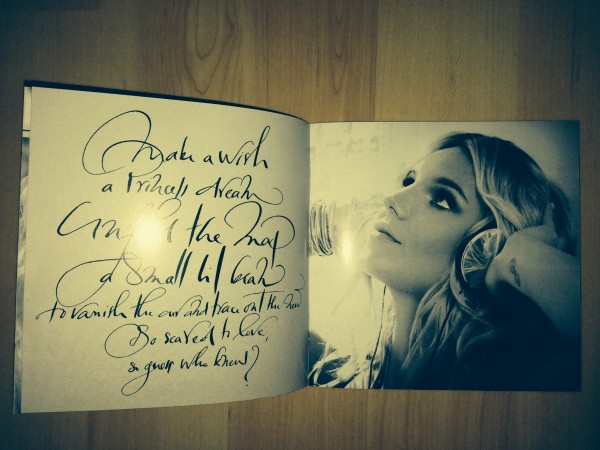 Make a wish
a Princess dream
the map
a small lil
to vanish the and trace out the new
So scared to love,
so guess who knew?